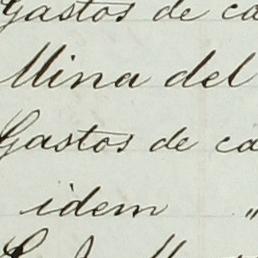 Gastos de ca
Mina del
Gastos de ca
idem "